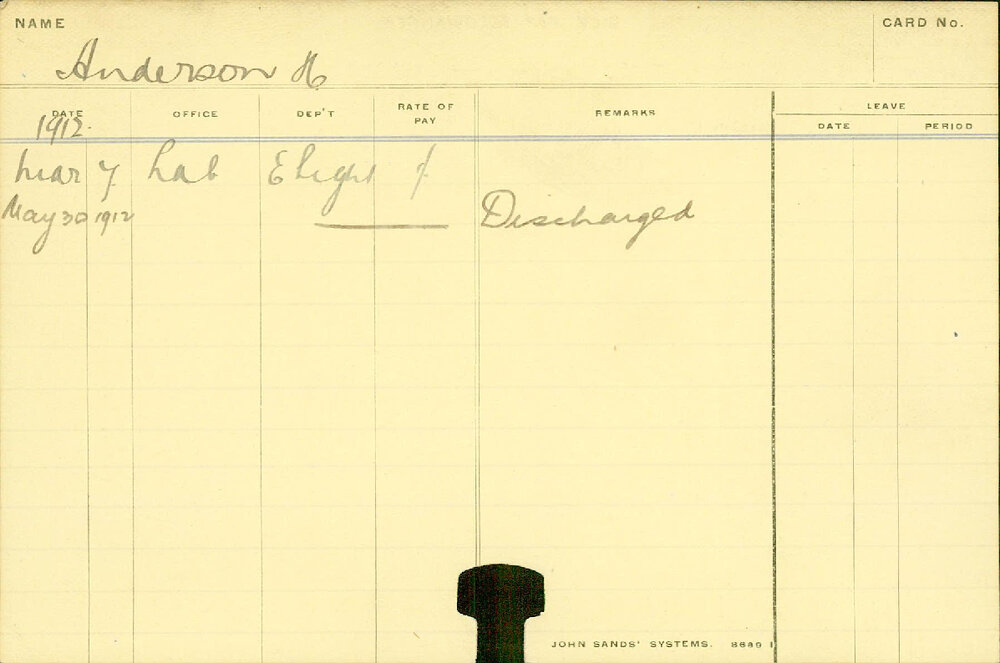 NAME
CARD No.
Anderson H
DATE OFFICE DEP'T RATE OF PAY REMARKS LEAVE
DATE PERIOD
1912.
Mar 7 Lab E Light
May 30 1912 Discharged
JOHN SANDS' SYSTEMS. 8689